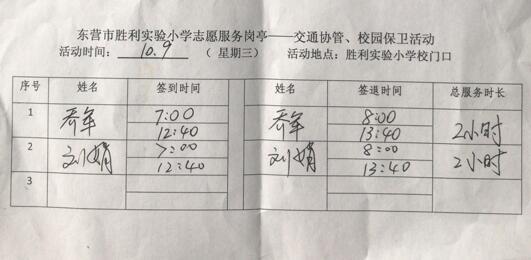 东营市胜利实验小学志愿服务岗亭——交通协管、校园保卫活动
活动时间: 10.9 （星期三） 活动地点: 胜利实验小学校门口
序号 姓名 签到时间 姓名 签退时间 总服务时长
1 7:00 8:00
12:40 13:40 2小时
2 刘婧 7:00 刘婧 8:00
12:40 13:40 2小时
3